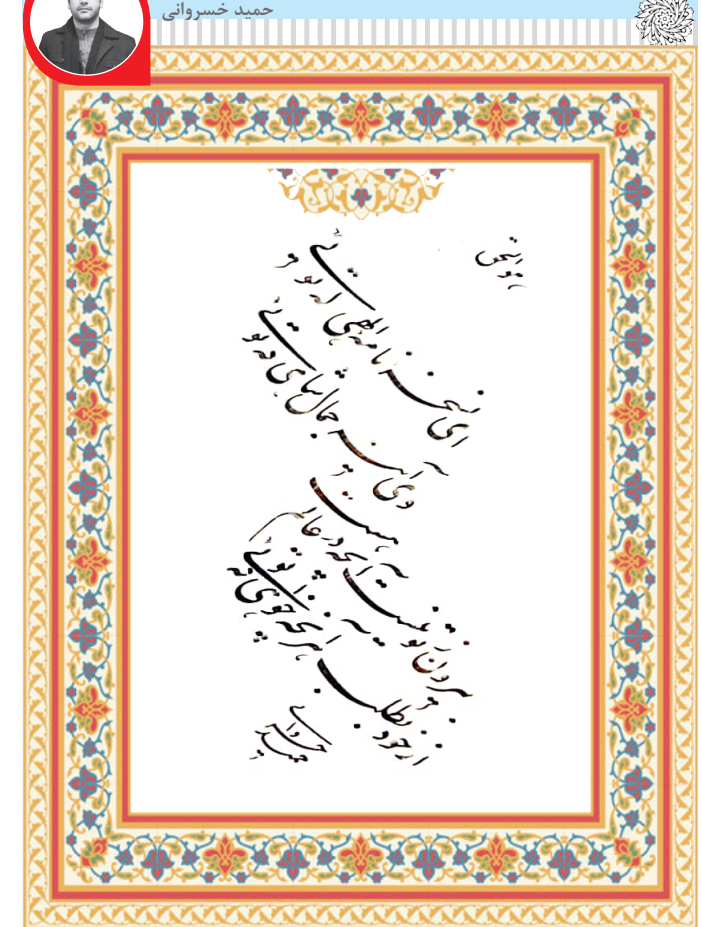 حمید خسروانی
هو الحق
ای نسخه نامه الهی که تویی
وی آینه جمال شاهی که تویی
بیرون ز تو نیست آنچه در عالم هست
از خود بطلب هر آنچه خواهی که تویی
حمید خسروانی